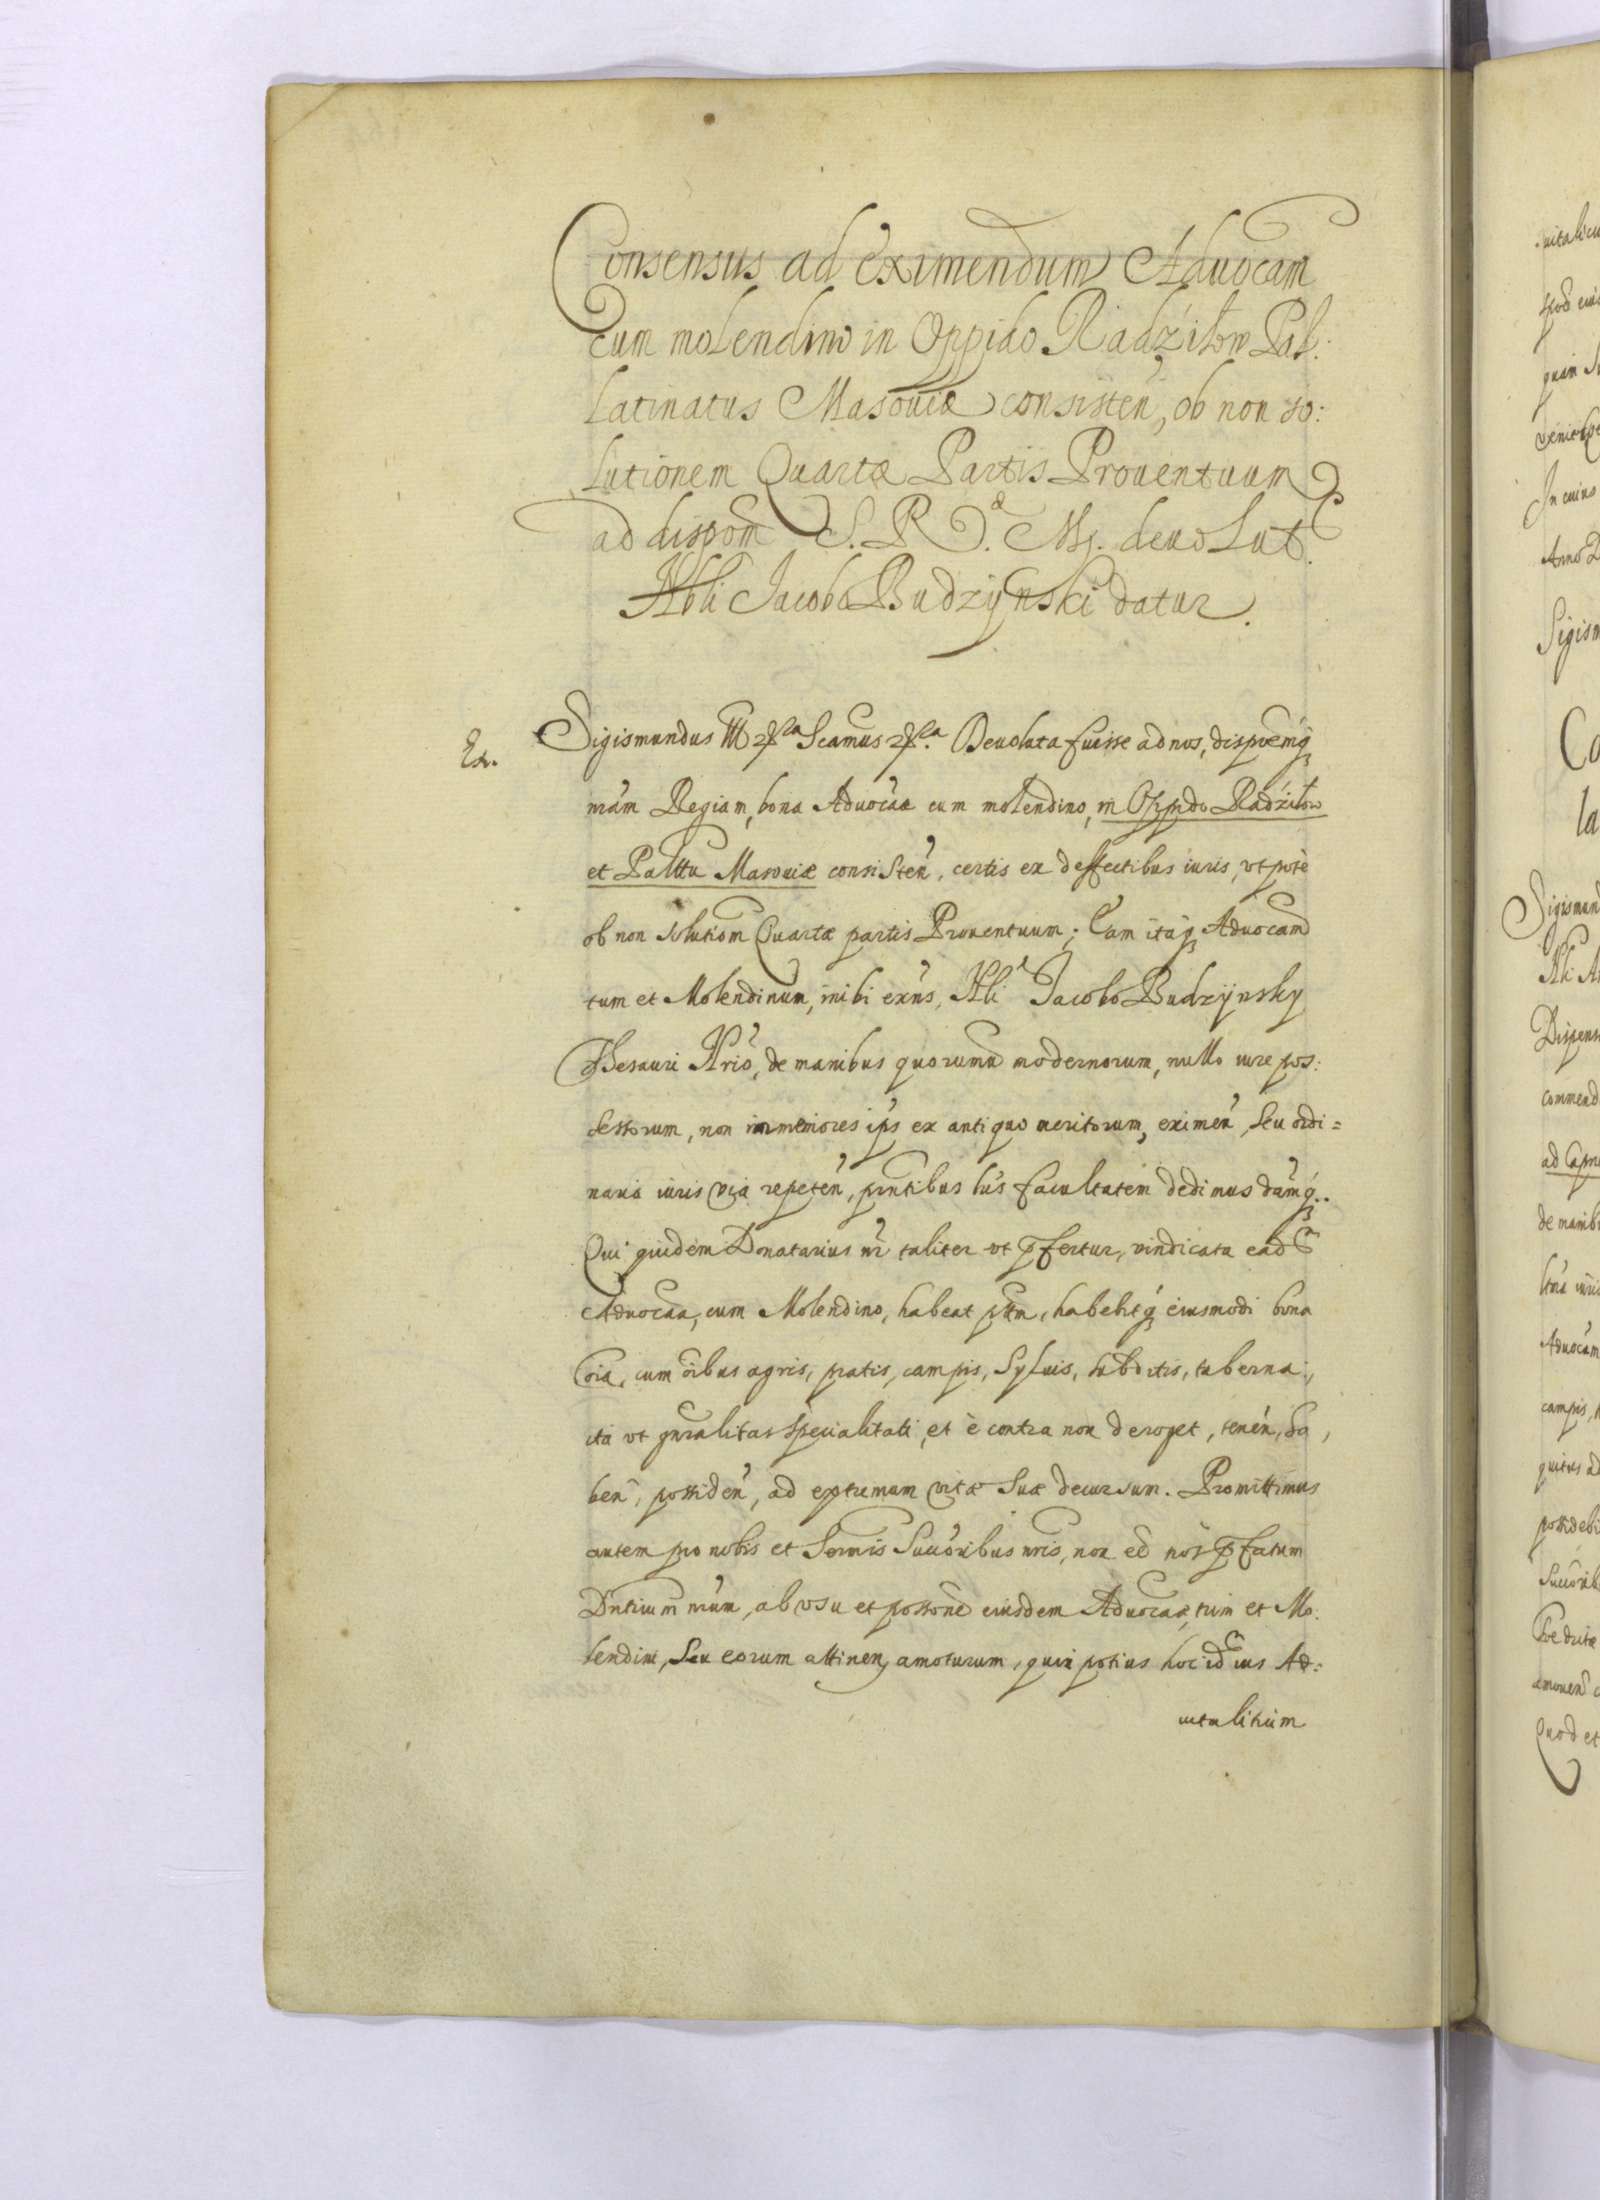 Consensus ad eximendum Aduocam
cum molendino in Oppido Radźiłow Pal:
latinatus Masouiæ consisten, ob non so:
lutionem Quartæ Partis Prouentuum
ad dispom S. R. Mj. deuolut.
Nbli Jacobo Budzÿnski datur.
Ex. Sigismundus III Scamus Deuoluta fuisse ad nos, dispoemq
nram Regiam, bona Aduocae cum molendino, in Oppido Radźiłow
et Palttu Masouiæ consisten, certis ex deffectibus iuris, vt pote
ob non solutiom Quartæ partis Prouentuum; Eam itaq Aduocam
tum et Molendinum, inibi exns, Nbli Jacobo Budzÿnsky
Thesauri Nrio, de manibus quorumu modernorum, nullo iure pos:
sessorum, non immemores ips ex antiquo meritorum, eximen, seu ordi=
naria iuris via repeten, pntibus lris facultatem dedimus damq..
Qui quidem Donatarius nr taliter vt pfertur, vindicata ead
Aduocaa, cum Molendino, habeat pttm, habebitq eiusmodi bona
oia, cum oibus agris, pratis, campis, Syluis, subditis, taberna,
ita vt gnralitas specialitati, et è contra non deroget, tenen, ha,
ben, possiden, ad extremum vitæ suæ decursum. Promittimus
autem pro nobis et Sermis Succoribus nris, non ee nos pfatum
Dntium nrum, ab vsu et possone eiusdem Aduocae, tum et Mo:
lendini, seu eorum attinen, amoturum, quin potius hoc id ius Ad:
uitalitium
Co
la
Sigismun
Dispens
commend
de manib
campis,
possidebi
Quod et
In cuius
Anno D
Sigism